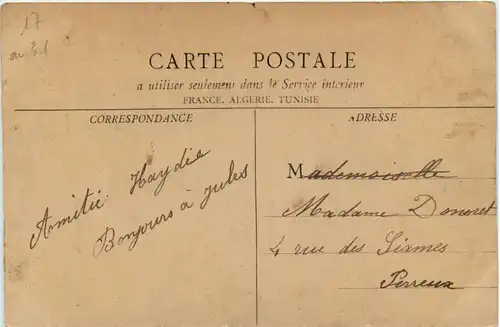 17
CARTE POSTALE
a utiliser seulement dans le Service interieur
FRANCE, ALGERIE, TUNISIE
CORRESPONDANCE
ADRESSE
Amitié Haydie
Bonjours à jules
Mademoiselle
Madame Donoret
4 rue des Siames
Perreux